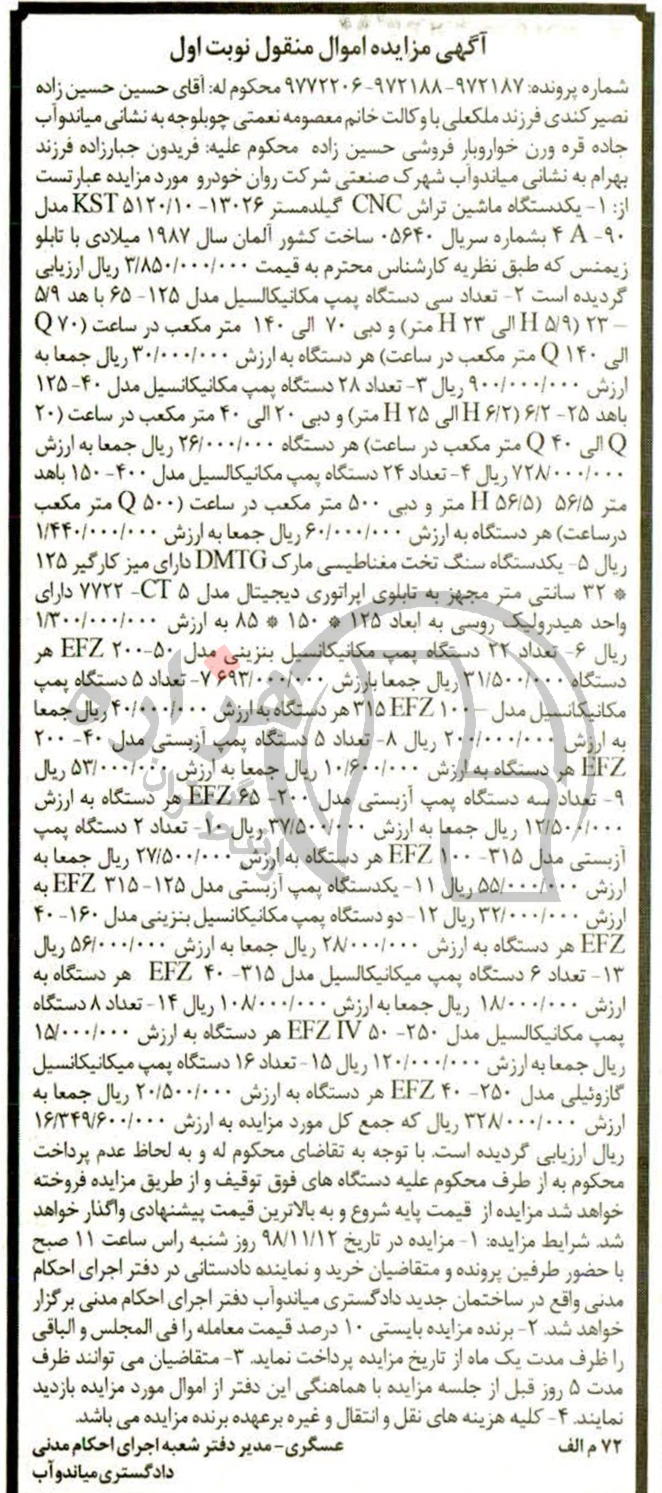 آگهی مزایده اموال منقول نوبت اول
شماره پرونده: ۹۷۲۱۸۷-۹۷۲۱۸۸-۹۷۷۲۲۰۶ محکوم له: آقای حسین حسین زاده
نصیر کندی فرزند ملکعلی با وکالت خانم معصومه نعمتی چوبلوجه به نشانی میاندوآب
جاده قره ورن خواروبار فروشی حسین زاده محکوم علیه: فریدون جبارزاده فرزند
بهرام به نشانی میاندوآب شهرک صنعتی شرکت روان خودرو مورد مزایده عبارتست
از: ۱- یکدستگاه ماشین تراش CNC گیلدمستر ۱۳۰۲۶- ۵۱۲۰/۱۰ KST مدل
۹۰- A ۴ بشماره سریال ۰۵۶۴۰ ساخت کشور آلمان سال ۱۹۸۷ میلادی با تابلو
زیمنس که طبق نظریه کارشناس محترم به قیمت ۳/۸۵۰/۰۰۰/۰۰۰ ریال ارزیابی
گردیده است ۲- تعداد سی دستگاه پمپ مکانیکالسیل مدل ۱۲۵- ۶۵ با هد ۵/۹
– ۲۳ (۵/۹ H الی ۲۳ H متر) و دبی ۷۰ الی ۱۴۰ متر مکعب در ساعت (۷۰ Q
الی ۱۴۰ Q متر مکعب در ساعت) هر دستگاه به ارزش ۳۰/۰۰۰/۰۰۰ ریال جمعا به
ارزش ۹۰۰/۰۰۰/۰۰۰ ریال ۳- تعداد ۲۸ دستگاه پمپ مکانیکانسیل مدل ۴۰- ۱۲۵
باهد ۲۵- ۶/۲ (۶/۲ H الی ۲۵ H متر) و دبی ۲۰ الی ۴۰ متر مکعب در ساعت (۲۰
Q الی ۴۰ Q متر مکعب در ساعت) هر دستگاه ۲۶/۰۰۰/۰۰۰ ریال جمعا به ارزش
۷۲۸/۰۰۰/۰۰۰ ریال ۴- تعداد ۲۴ دستگاه پمپ مکانیکالسیل مدل ۴۰۰- ۱۵۰ باهد
متر ۵۶/۵ (۵۶/۵ H متر و دبی ۵۰۰ متر مکعب در ساعت (۵۰۰ Q متر مکعب
درساعت) هر دستگاه به ارزش ۶۰/۰۰۰/۰۰۰ ریال جمعا به ارزش ۱/۴۴۰/۰۰۰/۰۰۰
ریال ۵- یکدستگاه سنگ تخت مغناطیسی مارک DMTG دارای میز کارگیر ۱۲۵
* ۳۲ سانتی متر مجهز به تابلوی اپراتوری دیجیتال مدل ۵ CT- ۷۷۲۲ دارای
واحد هیدرولیک روسی به ابعاد ۱۲۵ * ۱۵۰ * ۸۵ به ارزش ۱/۳۰۰/۰۰۰/۰۰۰
ریال ۶- تعداد ۲۲ دستگاه پمپ مکانیکانسیل بنزینی مدل ۵۰- ۲۰۰ EFZ هر
دستگاه ۳۱/۵۰۰/۰۰۰ ریال جمعا بارزش ۶۹۳/۰۰۰/۰۰۰ ۷- تعداد ۵ دستگاه پمپ
مکانیکانسیل مدل –۱۰۰ EFZ ۳۱۵ هر دستگاه به ارزش ۴۰/۰۰۰/۰۰۰ ریال جمعا
به ارزش ۲۰۰/۰۰۰/۰۰۰ ریال ۸- تعداد ۵ دستگاه پمپ آزبستی مدل ۴۰- ۲۰۰
EFZ هر دستگاه به ارزش ۱۰/۶۰۰/۰۰۰ ریال جمعا به ارزش ۵۳/۰۰۰/۰۰۰ ریال
۹- تعداد سه دستگاه پمپ آزبستی مدل ۲۰۰- ۶۵ EFZ هر دستگاه به ارزش
۱۲/۵۰۰/۰۰۰ ریال جمعا به ارزش ۳۷/۵۰۰/۰۰۰ ریال ۱۰- تعداد ۲ دستگاه پمپ
آزبستی مدل ۳۱۵- ۱۰۰ EFZ هر دستگاه به ارزش ۲۷/۵۰۰/۰۰۰ ریال جمعا به
ارزش ۵۵/۰۰۰/۰۰۰ ریال ۱۱- یکدستگاه پمپ آزبستی مدل ۱۲۵- ۳۱۵ EFZ به
ارزش ۳۲/۰۰۰/۰۰۰ ریال ۱۲- دو دستگاه پمپ مکانیکانسیل بنزینی مدل ۱۶۰- ۴۰
EFZ هر دستگاه به ارزش ۲۸/۰۰۰/۰۰۰ ریال جمعا به ارزش ۵۶/۰۰۰/۰۰۰ ریال
۱۳- تعداد ۶ دستگاه پمپ میکانیکالسیل مدل ۳۱۵- ۴۰ EFZ هر دستگاه به
ارزش ۱۸/۰۰۰/۰۰۰ ریال جمعا به ارزش ۱۰۸/۰۰۰/۰۰۰ ریال ۱۴- تعداد ۸ دستگاه
پمپ مکانیکالسیل مدل ۲۵۰- ۵۰ EFZ IV هر دستگاه به ارزش ۱۵/۰۰۰/۰۰۰
ریال جمعا به ارزش ۱۲۰/۰۰۰/۰۰۰ ریال ۱۵- تعداد ۱۶ دستگاه پمپ میکانیکانسیل
گازوئیلی مدل ۲۵۰- ۴۰ EFZ هر دستگاه به ارزش ۲۰/۵۰۰/۰۰۰ ریال جمعا به
ارزش ۳۲۸/۰۰۰/۰۰۰ ریال که جمع کل مورد مزایده به ارزش ۱۶/۳۴۹/۶۰۰/۰۰۰
ریال ارزیابی گردیده است. با توجه به تقاضای محکوم له و به لحاظ عدم پرداخت
محکوم به از طرف محکوم علیه دستگاه های فوق توقیف و از طریق مزایده فروخته
خواهد شد مزایده از قیمت پایه شروع و به بالاترین قیمت پیشنهادی واگذار خواهد
شد. شرایط مزایده: ۱- مزایده در تاریخ ۹۸/۱۱/۱۲ روز شنبه راس ساعت ۱۱ صبح
با حضور طرفین پرونده و متقاضیان خرید و نماینده دادستانی در دفتر اجرای احکام
مدنی واقع در ساختمان جدید دادگستری میاندوآب دفتر اجرای احکام مدنی برگزار
خواهد شد. ۲- برنده مزایده بایستی ۱۰ درصد قیمت معامله را فی المجلس و الباقی
را ظرف مدت یک ماه از تاریخ مزایده پرداخت نماید. ۳- متقاضیان می توانند ظرف
مدت ۵ روز قبل از جلسه مزایده با هماهنگی این دفتر از اموال مورد مزایده بازدید
نمایند. ۴- کلیه هزینه های نقل و انتقال و غیره برعهده برنده مزایده می باشد.
۷۲ م الف عسگری- مدیر دفتر شعبه اجرای احکام مدنی
دادگستری میاندوآب